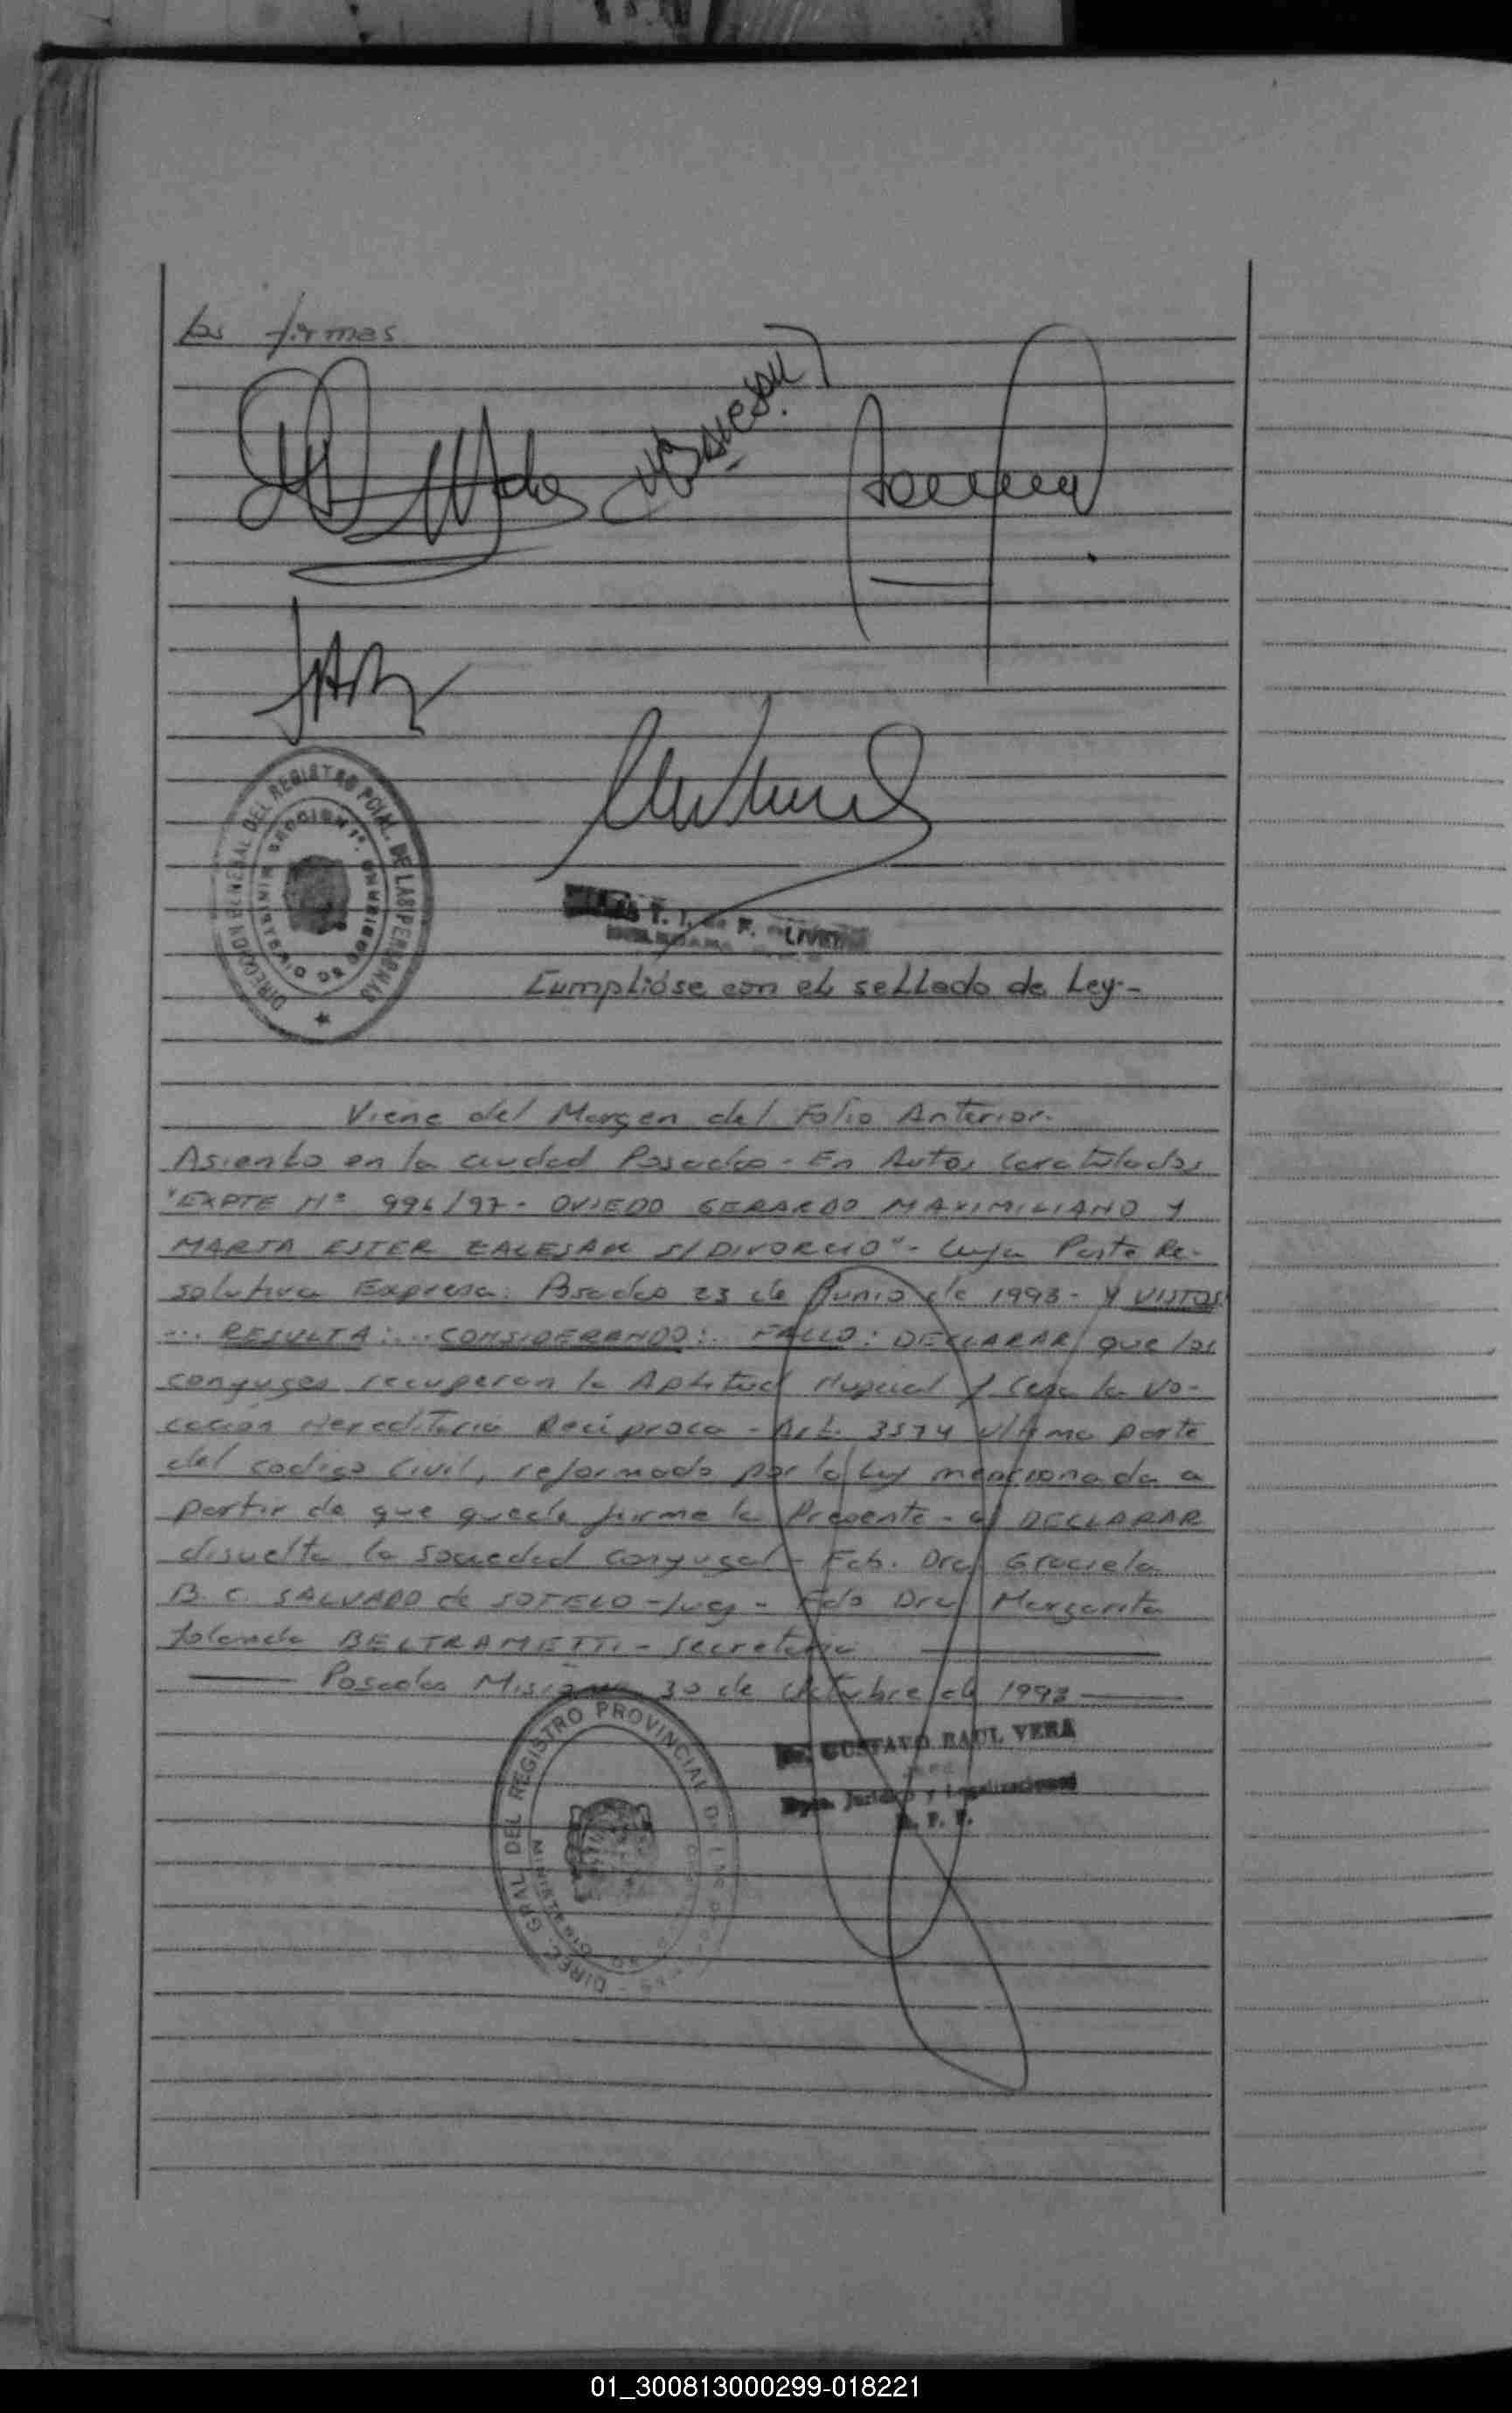 las firmas.
DIRECCION GENERAL DEL REGISTRO PCIAL. DE LAS PERSONAS
MINISTERIO DE GOBIERNO
SECCION 1ª
T. I. de F. OLIVEIRA
Cumplióse con el sellado de Ley.-
Viene del Margen del Folio Anterior.
Asiento en la ciudad Posadas - En Autos Caratulados
"EXPTE Nº 996/97 - OVIEDO GERARDO MAXIMILIANO Y
MARTA ESTER S/DIVORCIO" - Cuya Parte Re-
solutiva Expresa: Posadas 23 de Junio de 1998 - Y VISTOS
... RESULTA: ... CONSIDERANDO: .. FALLO: DECLARAR que los
conyuges recuperan la Aptitud Nupcial y Cesa la Vo-
cación Hereditaria Recíproca - Art. 3574 ultima parte
del codigo Civil, reformado por la Ley mencionada a
partir de que quede firme la Presente - DECLARAR
disuelta la Sociedad Conyugal - Fdo. Dra. Graciela
B. C. SALVADO de SOTELO - Juez - Fdo Dra Margarita
Yolanda BELTRAMETTI - Secretaria
Posadas Misiones 30 de Octubre de 1998
DIREC. GRAL. DEL REGISTRO PROVINCIAL DE LAS PERSONAS
MINISTERIO DE GOBIERNO
Dr. GUSTAVO RAUL VERA
Dpto. Jurídico y Legalizaciones
R. P. P.
01_300813000299-018221